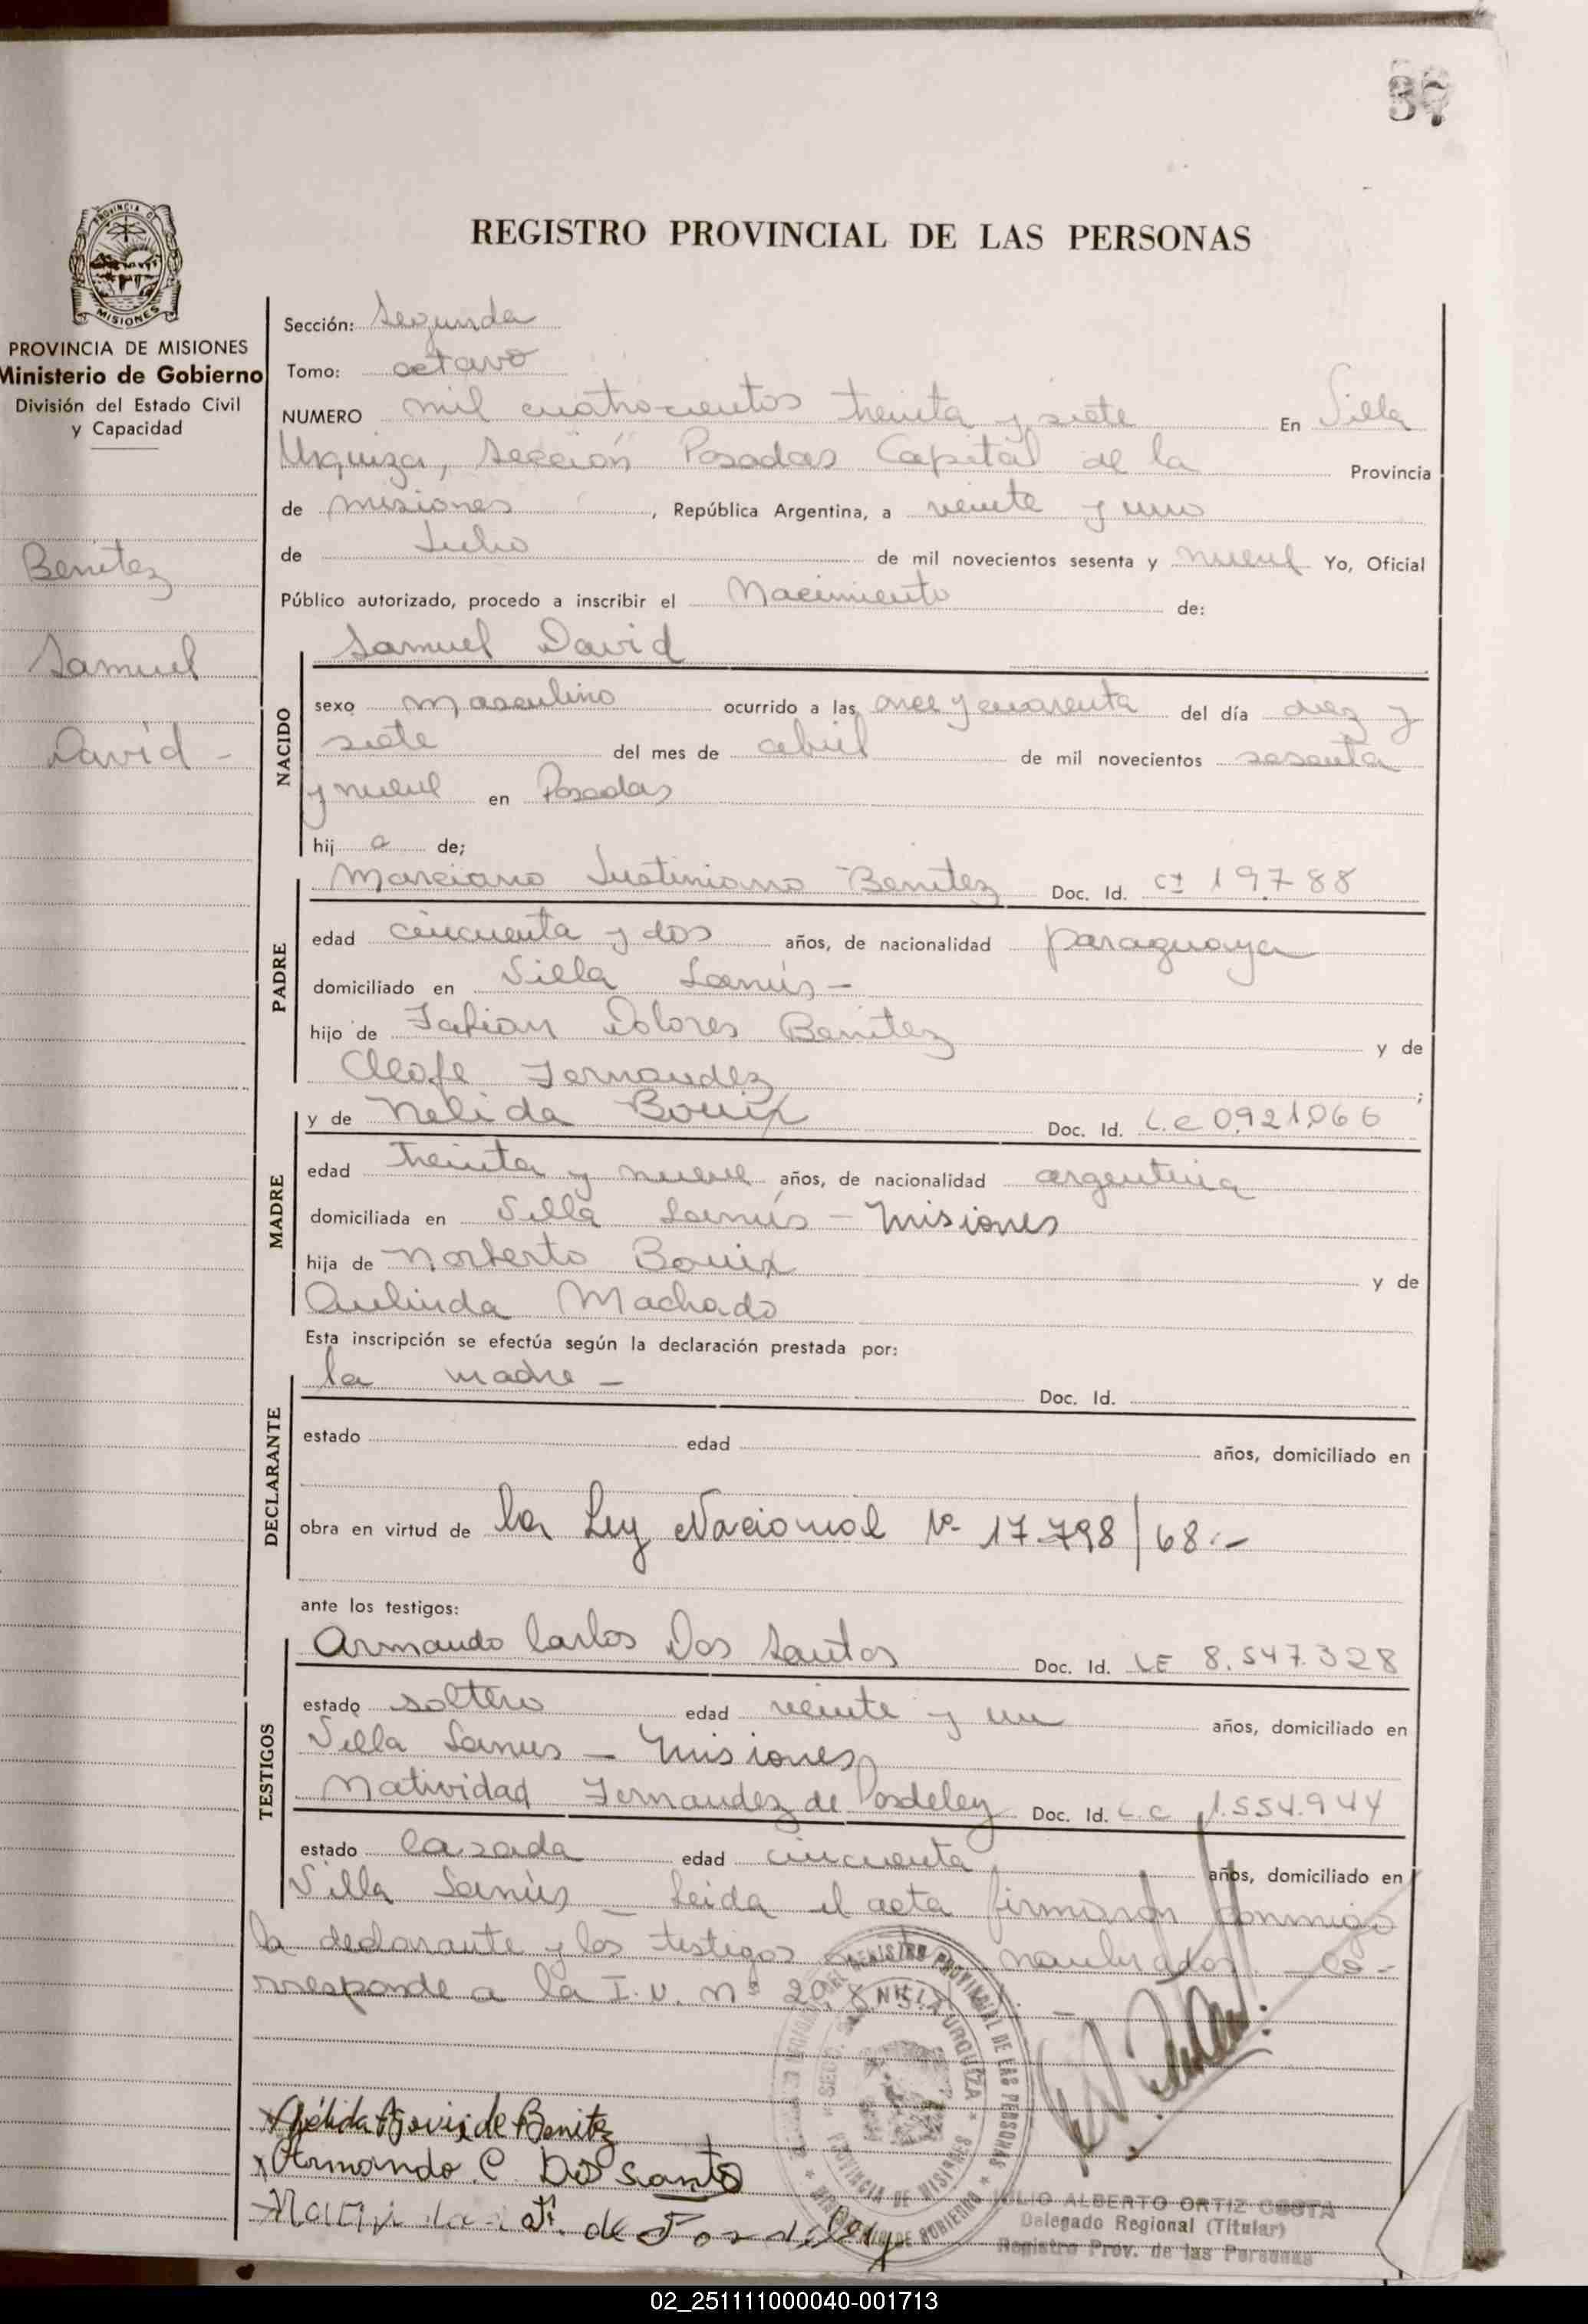 37
REGISTRO PROVINCIAL DE LAS PERSONAS
PROVINCIA DE MISIONES
Ministerio de Gobierno
División del Estado Civil
y Capacidad
Benitez
Samuel
David -
Sección: Segunda
Tomo: octavo
NUMERO mil cuatrocientos treinta y siete En Villa
Urquiza, Sección Posadas Capital de la Provincia
de misiones, República Argentina, a veinte y uno
de Julio de mil novecientos sesenta y nueve Yo, Oficial
Público autorizado, procedo a inscribir el Nacimiento de:
Samuel David
NACIDO
sexo masculino ocurrido a las once y cuarenta del día diez y
siete del mes de abril de mil novecientos sesenta
y nueve en Posadas
hij o de;
PADRE
Marciano Justiniano Benitez Doc. Id. CI 19788
edad cincuenta y dos años, de nacionalidad paraguaya
domiciliado en Villa Lanús -
hijo de Fabian Dolores Benitez y de
Cleofe Fernandez ;
MADRE
y de Nelida Bouix Doc. Id. L.C 0.921.066
edad treinta y nueve años, de nacionalidad argentina
domiciliada en Villa Lanús - Misiones
hija de Norberto Bouix y de
Aulinda Machado
Esta inscripción se efectúa según la declaración prestada por:
DECLARANTE
la madre - Doc. Id.
estado edad años, domiciliado en
obra en virtud de la Ley Nacional Nº 17.798/68.-
ante los testigos:
TESTIGOS
Armando Carlos Dos Santos Doc. Id. LE 8.547.328
estado soltero edad veinte y un años, domiciliado en
Villa Lanus - Misiones
Natividad Fernandez de Doc. Id. L.C 1.554.944
estado casada edad cincuenta años, domiciliado en
Villa Lanús - Leida el acta firmaron conmigo
la declarante y los testigos nombrados. - Co-
rresponde a la I.U. nº
Nélida Bouix de Benitez
Armando C. Dos Santos
REGISTRO PROVINCIAL DE LAS PERSONAS
VILLA URQUIZA
PROVINCIA DE MISIONES
JULIO ALBERTO ORTIZ COSTA
Delegado Regional (Titular)
Registro Prov. de las Personas
02_251111000040-001713